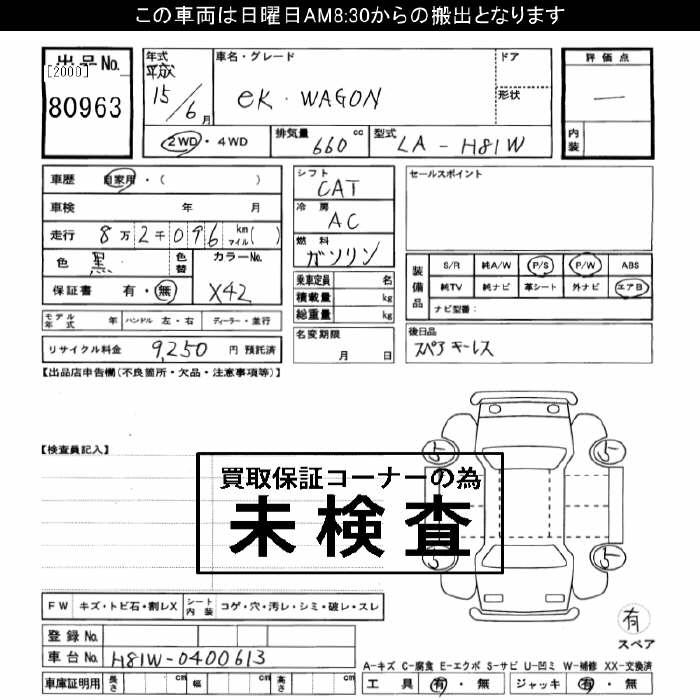 この車両は日曜日AM8:30からの搬出となります
出品No.
[2000]
80963
年式
平成
15/6月
車名・グレード
eK・WAGON
ドア
形状
評価点
―
内装
2WD・4WD
排気量 660 cc
型式 LA-H81W
車歴 自家用・( )
車検 年 月
走行 8万2千096 km マイル( )
色 黒 色替
カラーNo.
X42
保証書 有・無
シフト
CAT
冷房
AC
燃料
ガソリン
乗車定員 名
積載量 kg
総重量 kg
セールスポイント
装備品
S/R 純A/W P/S P/W ABS
純TV 純ナビ 革シート 外ナビ エアB
ナビ型番:
モデル年式 年 ハンドル 左・右 ディーラー・並行
リサイクル料金 9,250 円 預託済
名変期限
月 日
後日品
スペアキーレス
【出品店申告欄(不良箇所・欠品・注意事項等)】
【検査員記入】
買取保証コーナーの為
未検査
5 5
5 5
FW キズ・トビ石・割レX シート内装 コゲ・穴・汚レ・シミ・破レ・スレ
登録No.
車台No. H81W-0400613
車庫証明用 長さ cm 幅 cm 高さ cm
有
スペア
A-キズ C-腐食 E-エクボ S-サビ U-凹ミ W-補修 XX-交換済
工具 有・無 ジャッキ 有・無